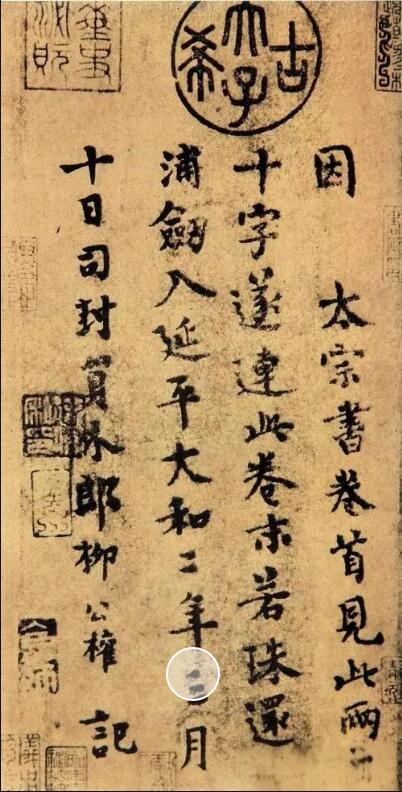 古希天子
因 太宗書卷首見此兩
十字遂連此卷末若珠還
浦劔入延平大和二年月
十日司封員外郎柳公權 記